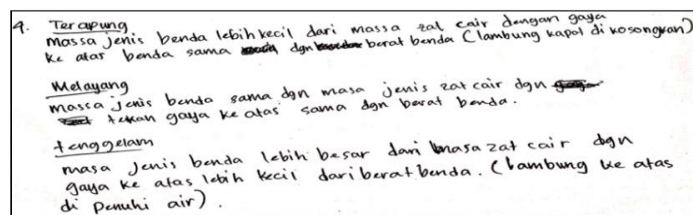 4. Terapung
Massa jenis benda lebih kecil dari massa zat cair dengan gaya
ke atas benda sama dgn berat benda (lambung kapal di kosongkan)
Melayang
massa jenis benda sama dgn masa jenis zat cair dgn
tekan gaya ke atas sama dgn berat benda.
tenggelam
masa jenis benda lebih besar dari masa zat cair dgn
gaya ke atas lebih kecil dari berat benda. (lambung ke atas
di penuhi air).